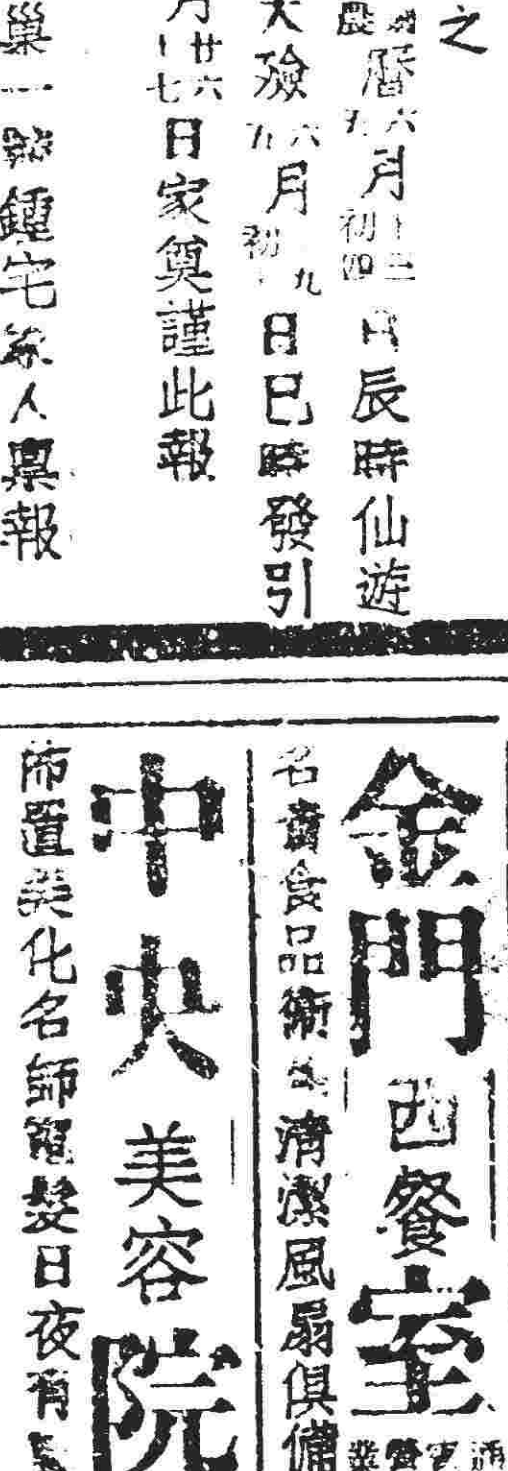 之
國農曆六五月十三初四日辰時仙遊
大殮六五月初九日巳時發引
月廿六十七日家奠謹此報
巢一號鍾宅家人稟報
金門西餐室
名貴食品衛生清潔風扇俱備
中央美容院
佈置美化名師電髮日夜有